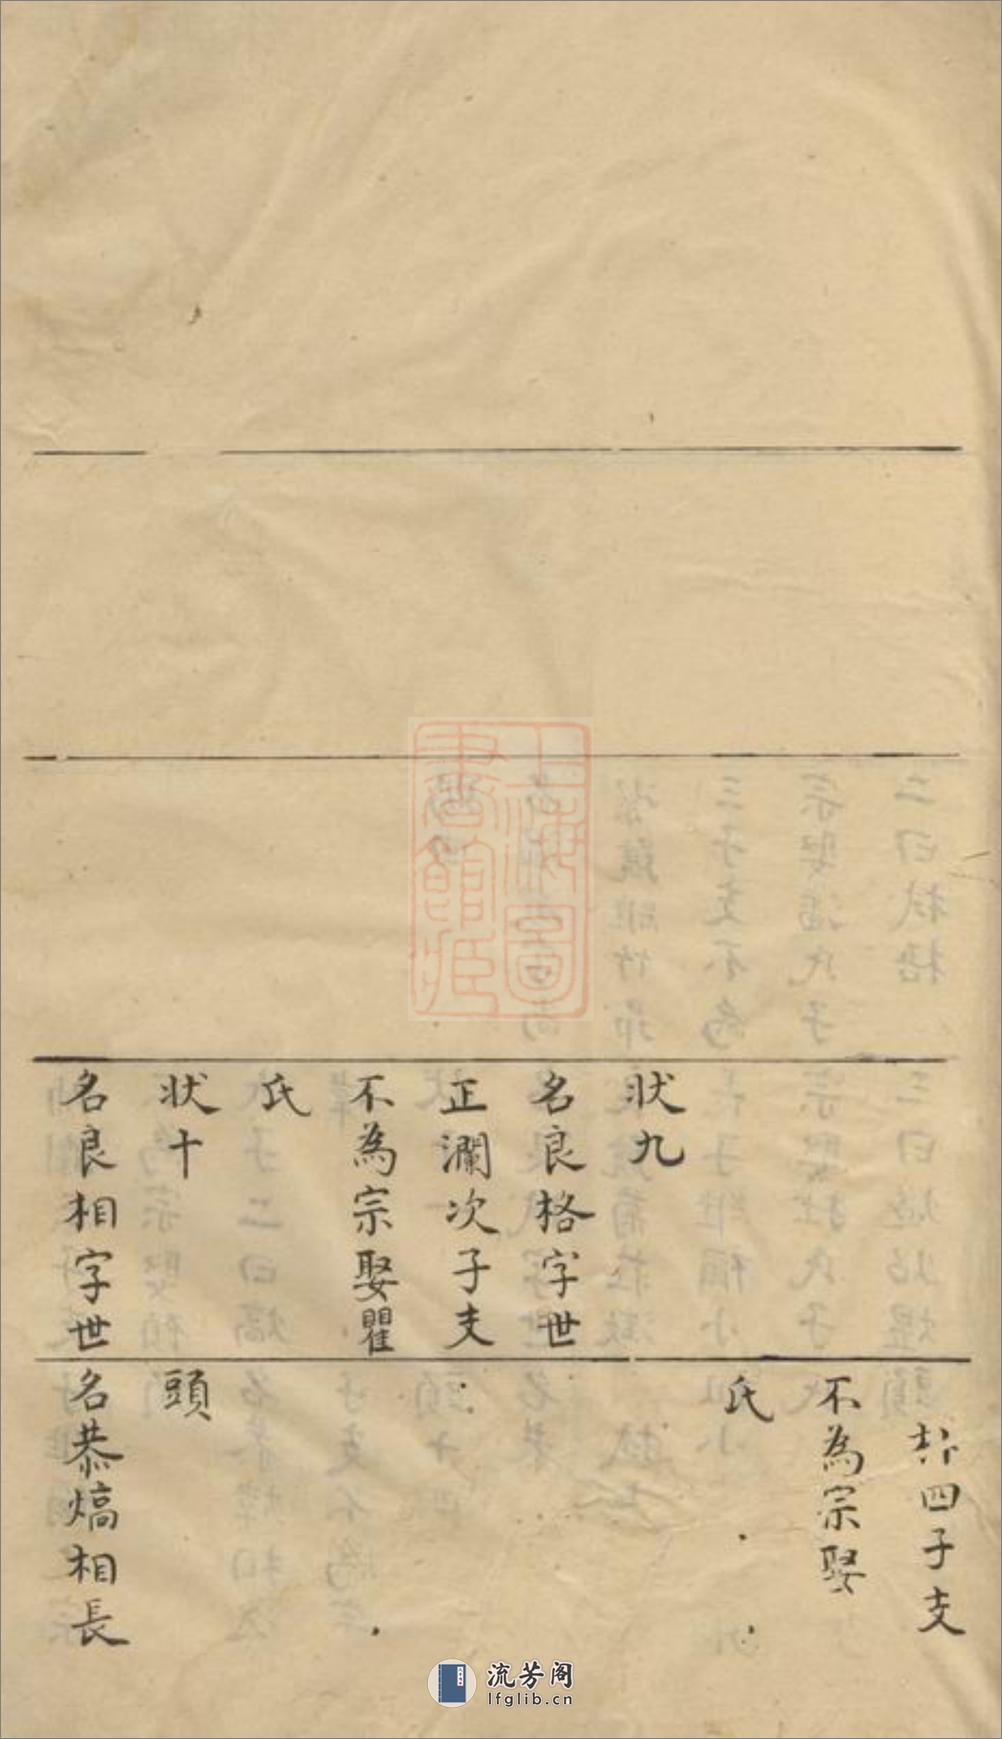 状九
名良格字世
正瀾次子支
不為宗娶瞿
氏
状十
名良相字世
四子支
不為宗娶
氏
頭
名恭熇相長
上海圖
書館藏
流芳阁
lfglib.cn